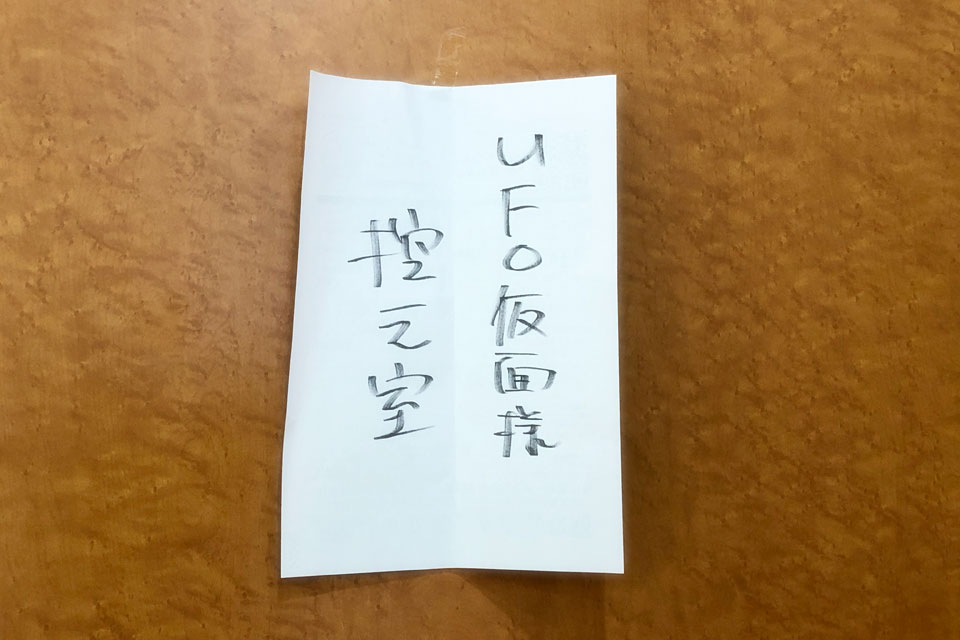 UFO仮面様
控え室